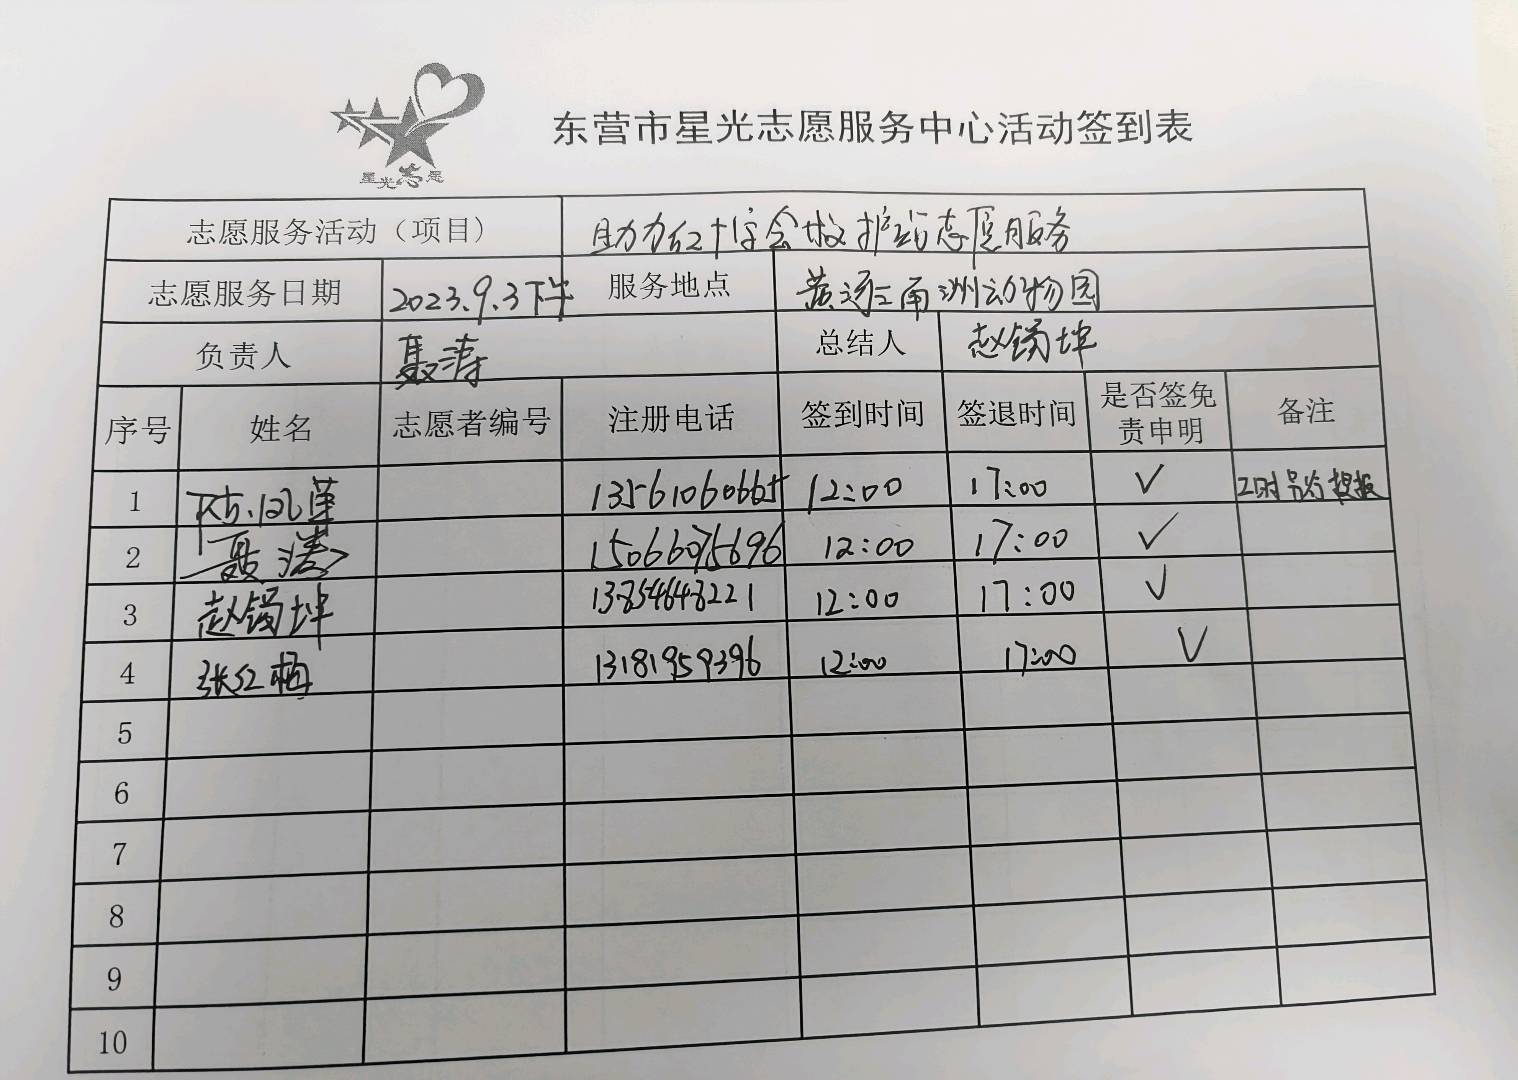 星光志愿
东营市星光志愿服务中心活动签到表
志愿服务活动（项目） 助力红十字会救护站志愿服务
志愿服务日期 2023.9.3下午 服务地点 黄河三角洲动物园
负责人 聂涛 总结人 赵锡坤
序号 姓名 志愿者编号 注册电话 签到时间 签退时间 是否签免责申明 备注
1 13561060665 12:00 17:00 ✓ 工时另行
2 聂涛 15066075696 12:00 17:00 ✓
3 赵锡坤 13854648221 12:00 17:00 ✓
4 张红梅 13181959396 12:00 17:00 ✓
5
6
7
8
9
10